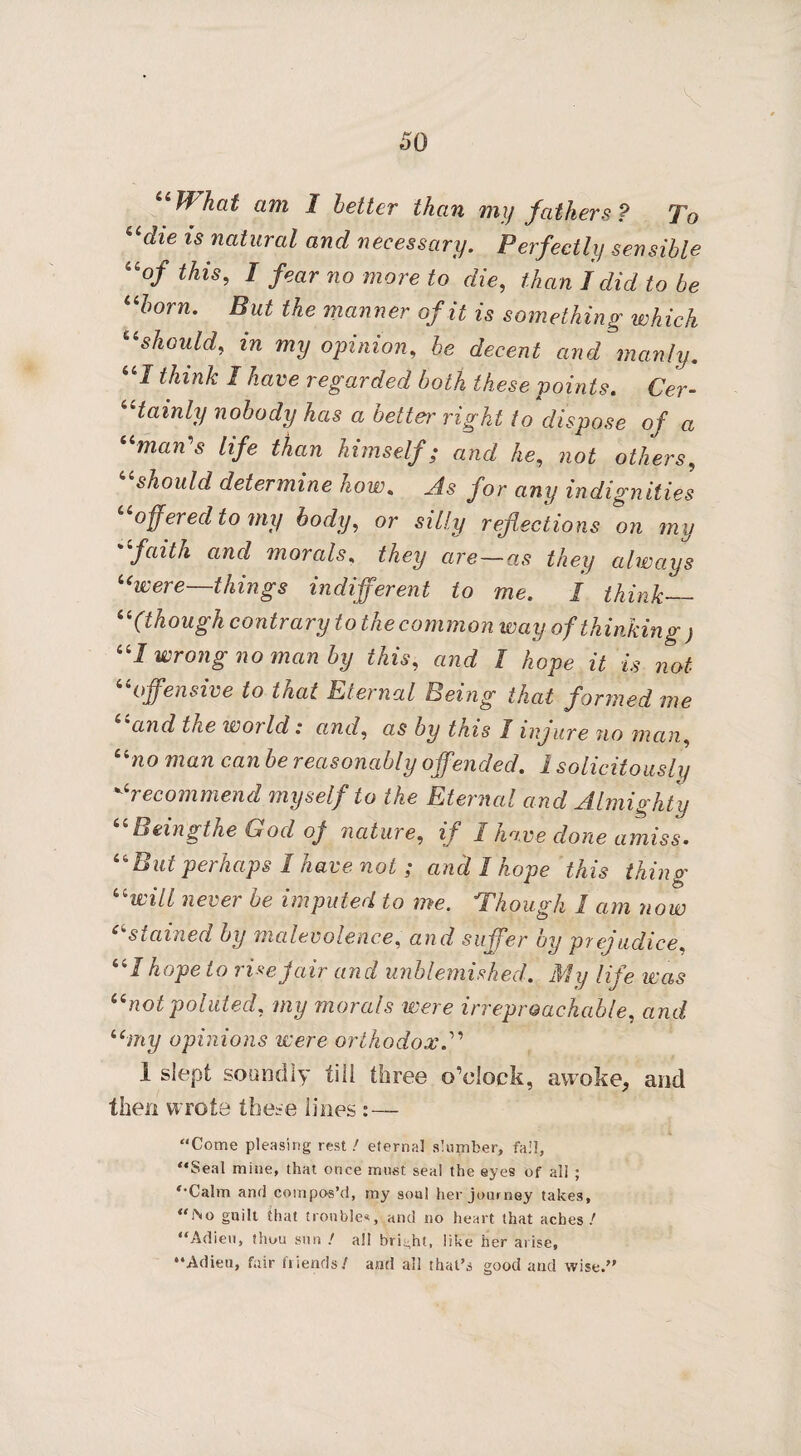 50
“What am I better than my fathers? To
“die is natural and necessary. Perfectly sensible
“of this, I fear no more to die, than I did to be
“born. But the manner of it is something which
“should, in my opinion, be decent and manly.
“I think I have regarded both these points. Cer-
“tainly nobody has a better right to dispose of a
“man's life than himself; and he, not others,
“should determine how. As for any indignities
“offered to my body, or silly reflections on my
“faith and morals, they are—as they always
“were—things indifferent to me. I think—
“(though contrary to the common way of thinking)
“I wrong no man by this, and I hope it is not
“offensive to that Eternal Being that formed me
“and the world: and, as by this I injure no man,
“no man can be reasonably offended. I solicitously
“recommend myself to the Eternal and Almighty
“Beingthe God of nature, if I have done amiss.
“But perhaps I have not; and I hope this thing
“will never be imputed to me. Though I am now
“stained by malevolence, and suffer by prejudice,
“I hope to rise fair and unblemished. My life was
“not poluted, my morals were irreproachable, and
“my opinions were orthodox.”
I slept soundly till three o'clock, awoke, and
then wrote these lines:—
“Come pleasing rest! eternal slumber, fall,
“Seal mine, that once must seal the eyes of all;
“Calm and compos'd, my soul her journey takes,
“No guilt that troubles, and no heart that aches!
“Adieu, thou sun! all bright, like her arise,
“Adieu, fair friends! and all that's good and wise.”